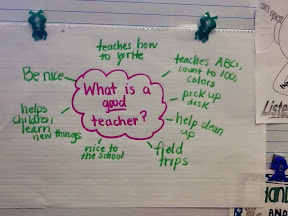 teaches how
to write
Be nice
teaches ABCs,
count to 100,
colors
What is a
good
teacher?
pick up
desk
helps
children
learn
new things
help clean
up
nice to
the school
field
trips
Listen
AND